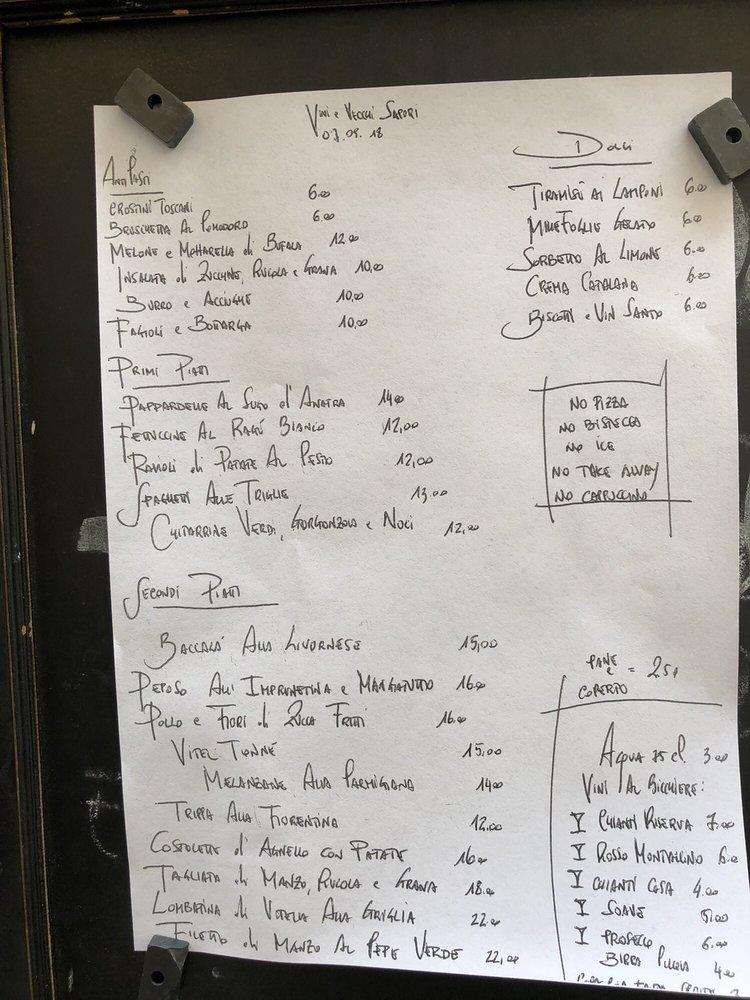 Vini e Vecchi Sapori
07.09.18
AntiPasti
Crostini Toscani 6.00
Bruschetta Al Pomodoro 6.00
Melone e Mozzarella di Bufala 12.00
Insalata di Zucchine, Rucola e Grana 10,00
Burro e Acciughe 10,00
Fagioli e Bottarga 10,00
Primi Piatti
Pappardelle Al Sugo d'Anatra 14,00
Fettuccine Al Ragù Bianco 12,00
Ravioli di Patate Al Pesto 12,00
Spaghetti Alle Triglie 13.00
Chitarrine Verdi, Gorgonzola e Noci 12,00
Secondi Piatti
Baccalà Alla Livornese 15,00
Peposo All'Imprunetina e 16.00
Pollo e Fiori di Zucca Fritti 16.00
Vitel Tonné 15,00
Melanzane Alla Parmigiana 14,00
Trippa Alla Fiorentina 12.00
Costolette d'Agnello con Patate 16.00
Tagliata di Manzo, Rucola e Grana 18.00
Lombatina di Vitella Alla Griglia 22.00
Filetto di Manzo Al Pepe Verde 22,00
Dolci
Tiramisù ai Lamponi 6.00
Millefoglie Gelato 6.00
Sorbetto Al Limone 6.00
Crema Catalana 6.00
Biscotti e Vin Santo 6.00
No Pizza
No Bistecca
No Ice
No Take Away
No Cappuccino
Pane e Coperto = 2.50
Acqua 75 cl. 3.00
Vini Al Bicchiere:
Chianti Riserva 7.00
Rosso Montalcino 6.00
Chianti Casa 4.00
Soave 5,00
Prosecco 6.00
Birra Piccola 4.00